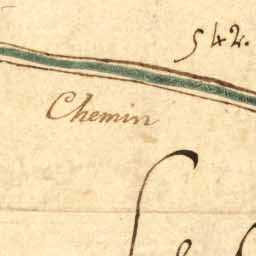 542.
Chemin